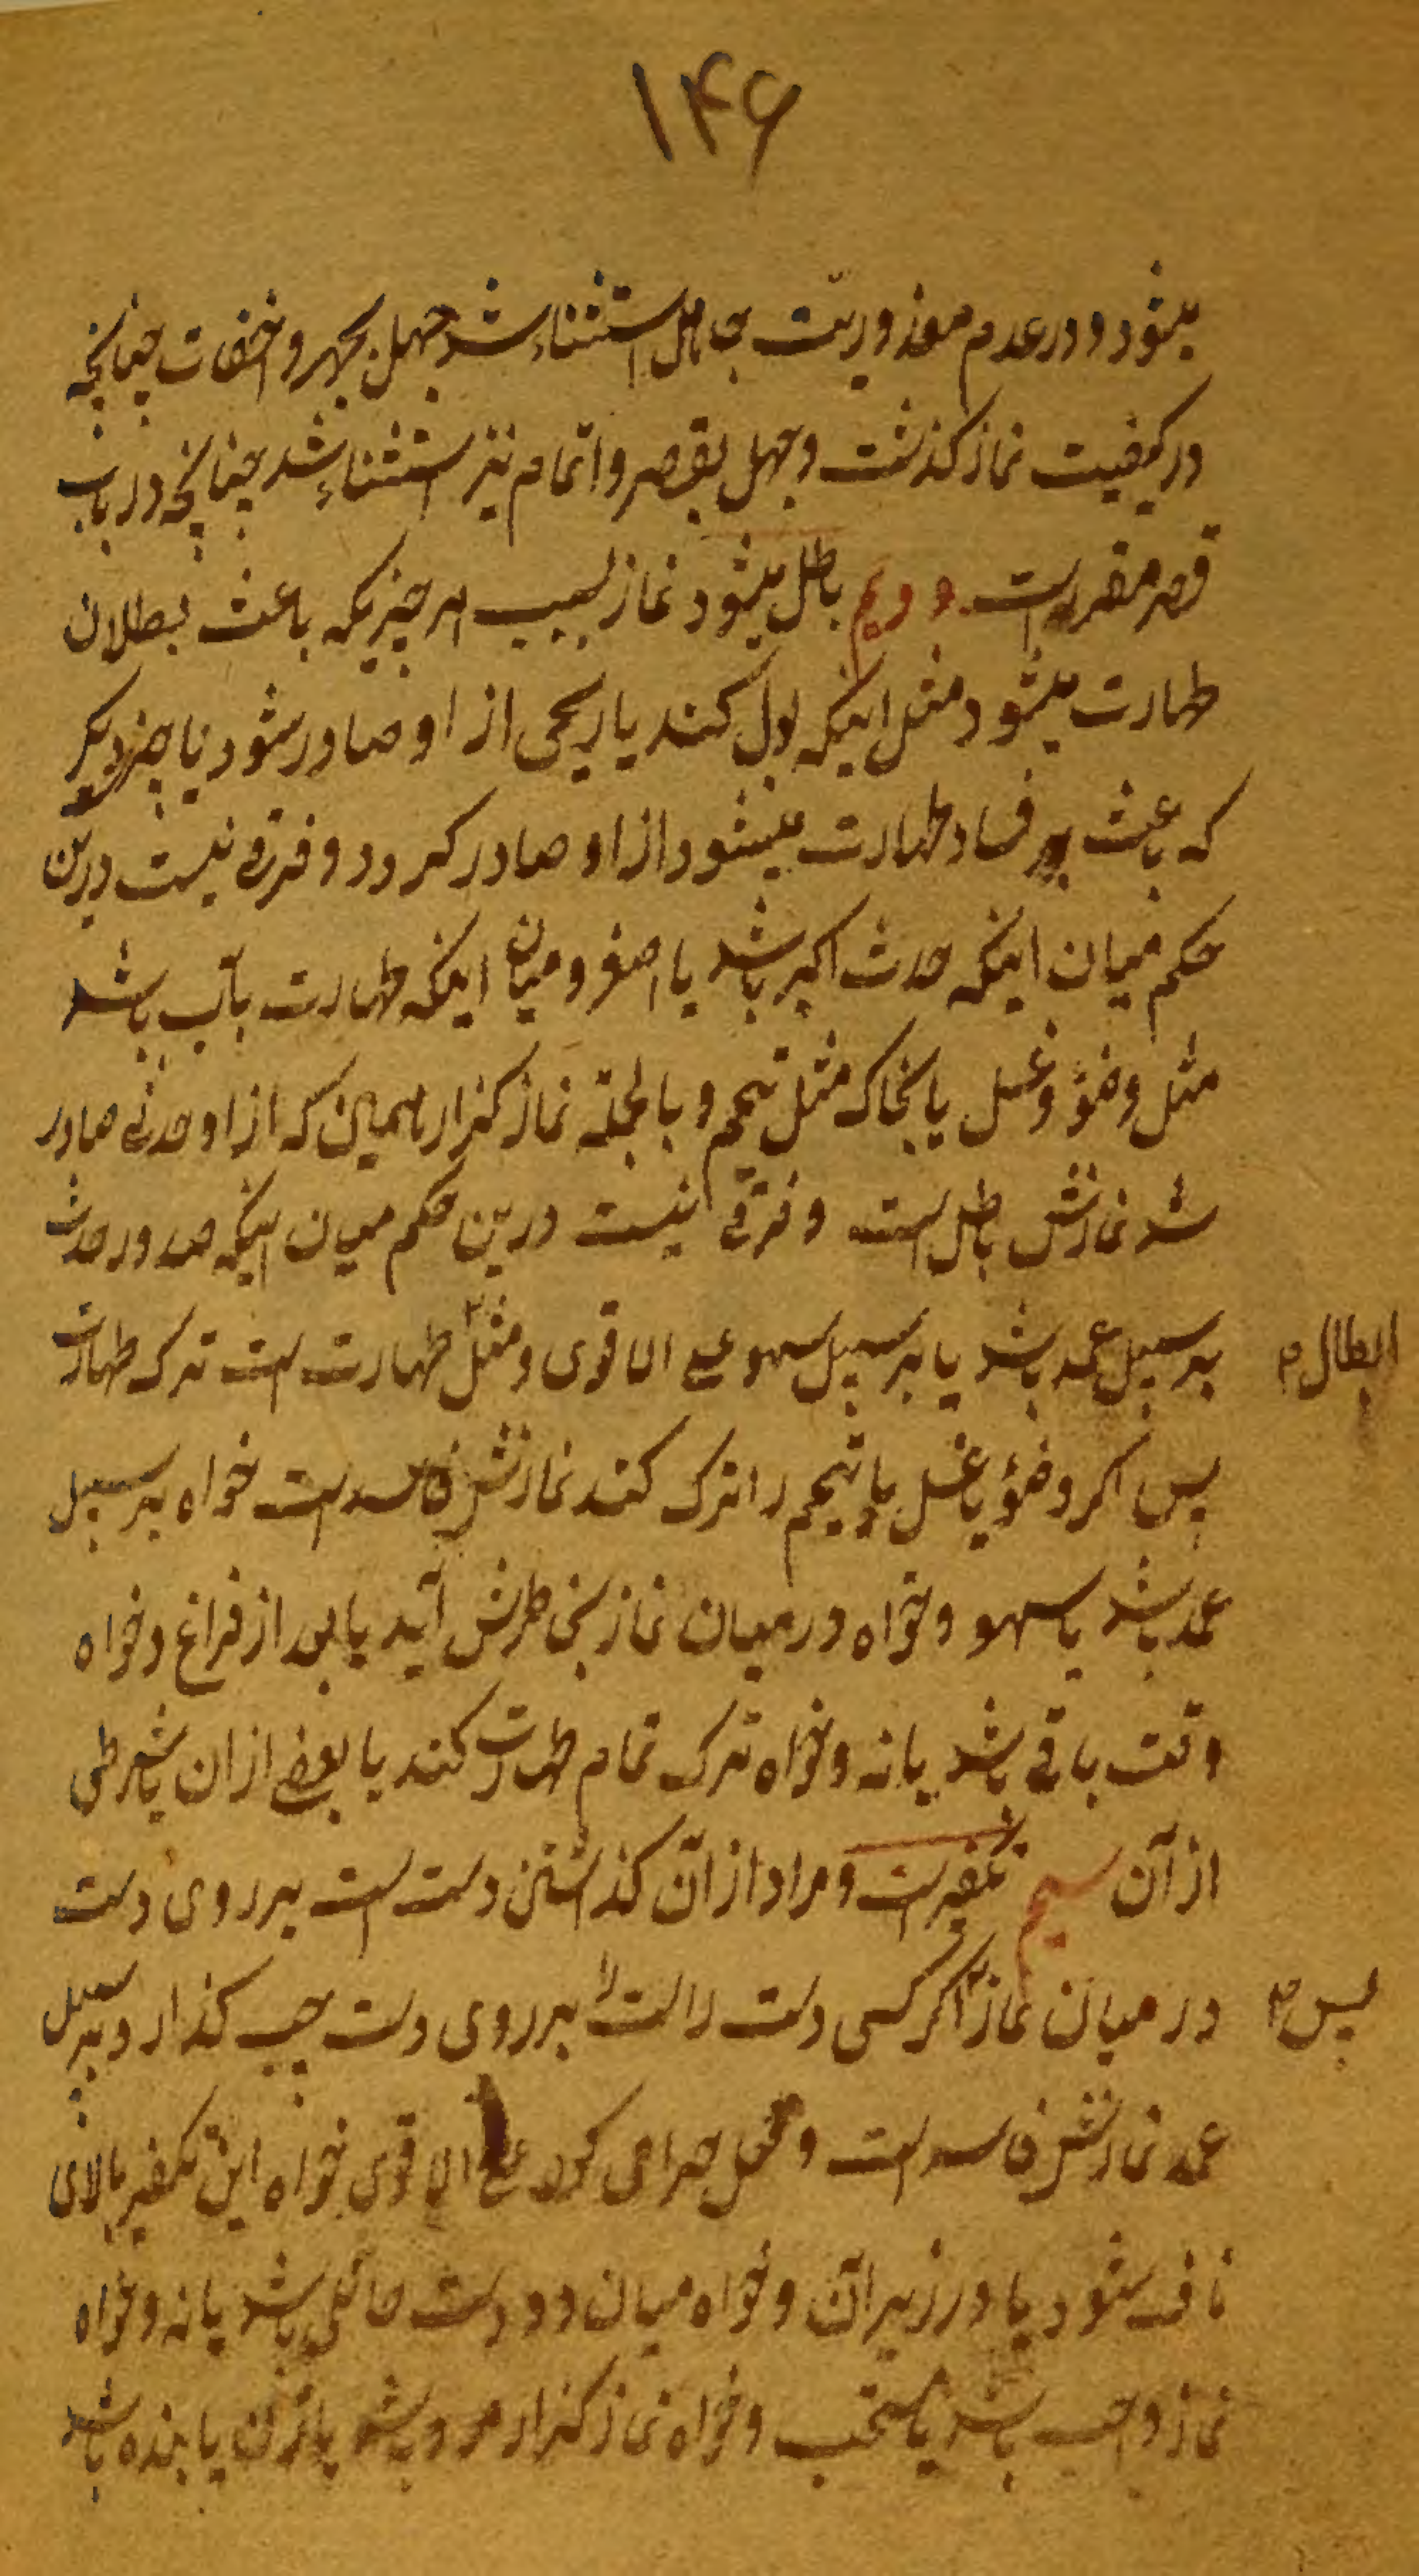 ۱۴۶
میشود و در عدم معذوریّت جاهل استثناء شد جهل بجهر و اخفات چنانچه
در کیفیت نماز کذشت و جهل بقصر و اتمام نیز استثناء شد چنانچه در باب
قصر مقرر است دویم باطل میشود نماز بسبب هر چیزیکه باعث بطلان
طهارت میشود مثل اینکه بول کند یا ریحی از او صادر شود یا چیز دیکر
که باعث بر فساد طهارت میشود از او صادر کردد و فرقی نیست درین
حکم میان اینکه حدث اکبر باشد یا اصغر و میان اینکه طهارت بآب باشد
مثل وضؤ و غسل یا بخاک مثل تیمم و بالجملة نماز کزار همین که از او حدثی صادر
شد نمازش باطل است و فرقی نیست درین حکم میان اینکه صدور حدث
بر سبیل عمد باشد یا بر سبیل سهو علی الاقوی و مثل طهارت است ترک طهارت
ابطال ۲
پس اکر وضؤ یا غسل یا تیمم را ترک کند نمازش فاسد است خواه بر سبیل
عمد باشد یا سهو و خواه در میان نماز بخاطرش آید یا بعد از فراغ و خواه
وقت باقی باشد یا نه و خواه ترک تمام طهارت کند یا بعضی از ان یا شرطی
از آن سیم تکفیر است و مراد از آن کذاشتن دست است بر روی دست
در میان نماز اکر کسی دست راست را بر روی دست چپ کذارد بر سبیل
پس
عمد نمازش فاسد است و فعل حرامی کرده علی الاقوی خواه این تکفیر بالای
ناف شود یا در زیر آن و خواه میان دو دست حائلی باشد یا نه و خواه
نماز واجب باشد یا مستحب و خواه نماز کزار مرد باشد یا زن یا بنده باشد